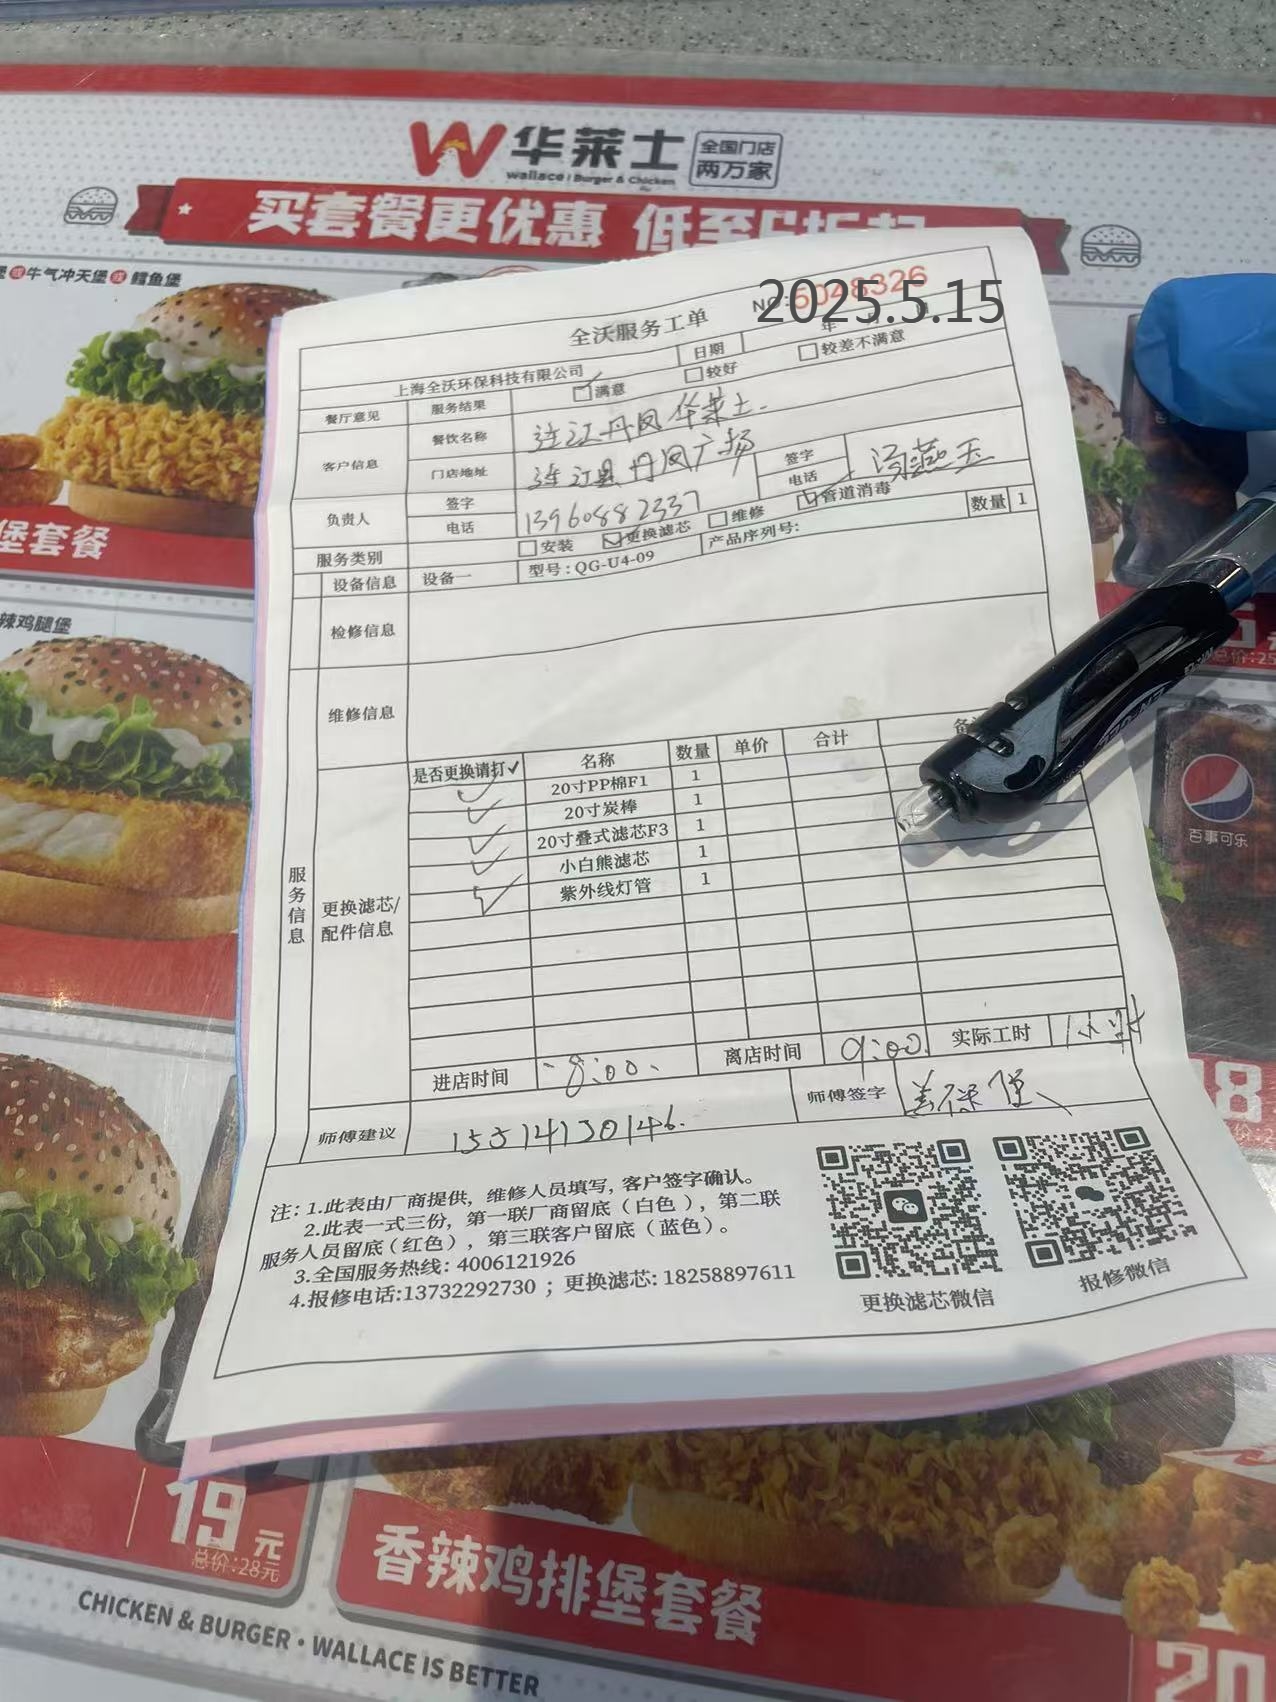 W 华莱士
全国门店
两万家
wallace | Burger & Chicken
买套餐更优惠 低至
牛气冲天堡或鳕鱼堡
堡套餐
辣鸡腿堡
百事可乐
19元
总价:28元
香辣鸡排堡套餐
CHICKEN & BURGER · WALLACE IS BETTER
全沃服务工单
NO:5048326
2025.5.15
上海全沃环保科技有限公司
日期
年
餐厅意见
服务结果
满意
较好
较差不满意
客户信息
餐饮名称
连江丹凤华莱士
门店地址
连江县丹凤广场
负责人
签字
电话
13960882337
签字
电话
冯燕玉
服务类别
安装
更换滤芯
维修
管道消毒
设备信息
设备一
型号:QG-U4-09
产品序列号:
数量
1
检修信息
维修信息
服务信息
更换滤芯/
配件信息
是否更换请打✓
名称
数量
单价
合计
✓ 20寸PP棉F1 1
✓ 20寸炭棒 1
✓ 20寸叠式滤芯F3 1
✓ 小白熊滤芯 1
✓ 紫外线灯管 1
进店时间
8:00
离店时间
9:00
实际工时
1小时
师傅建议
15514130146
师傅签字
注: 1.此表由厂商提供，维修人员填写, 客户签字确认。
2.此表一式三份，第一联厂商留底（白色），第二联
服务人员留底(红色)，第三联客户留底（蓝色）。
3.全国服务热线: 4006121926
4.报修电话:13732292730 ；更换滤芯: 18258897611
更换滤芯微信
报修微信